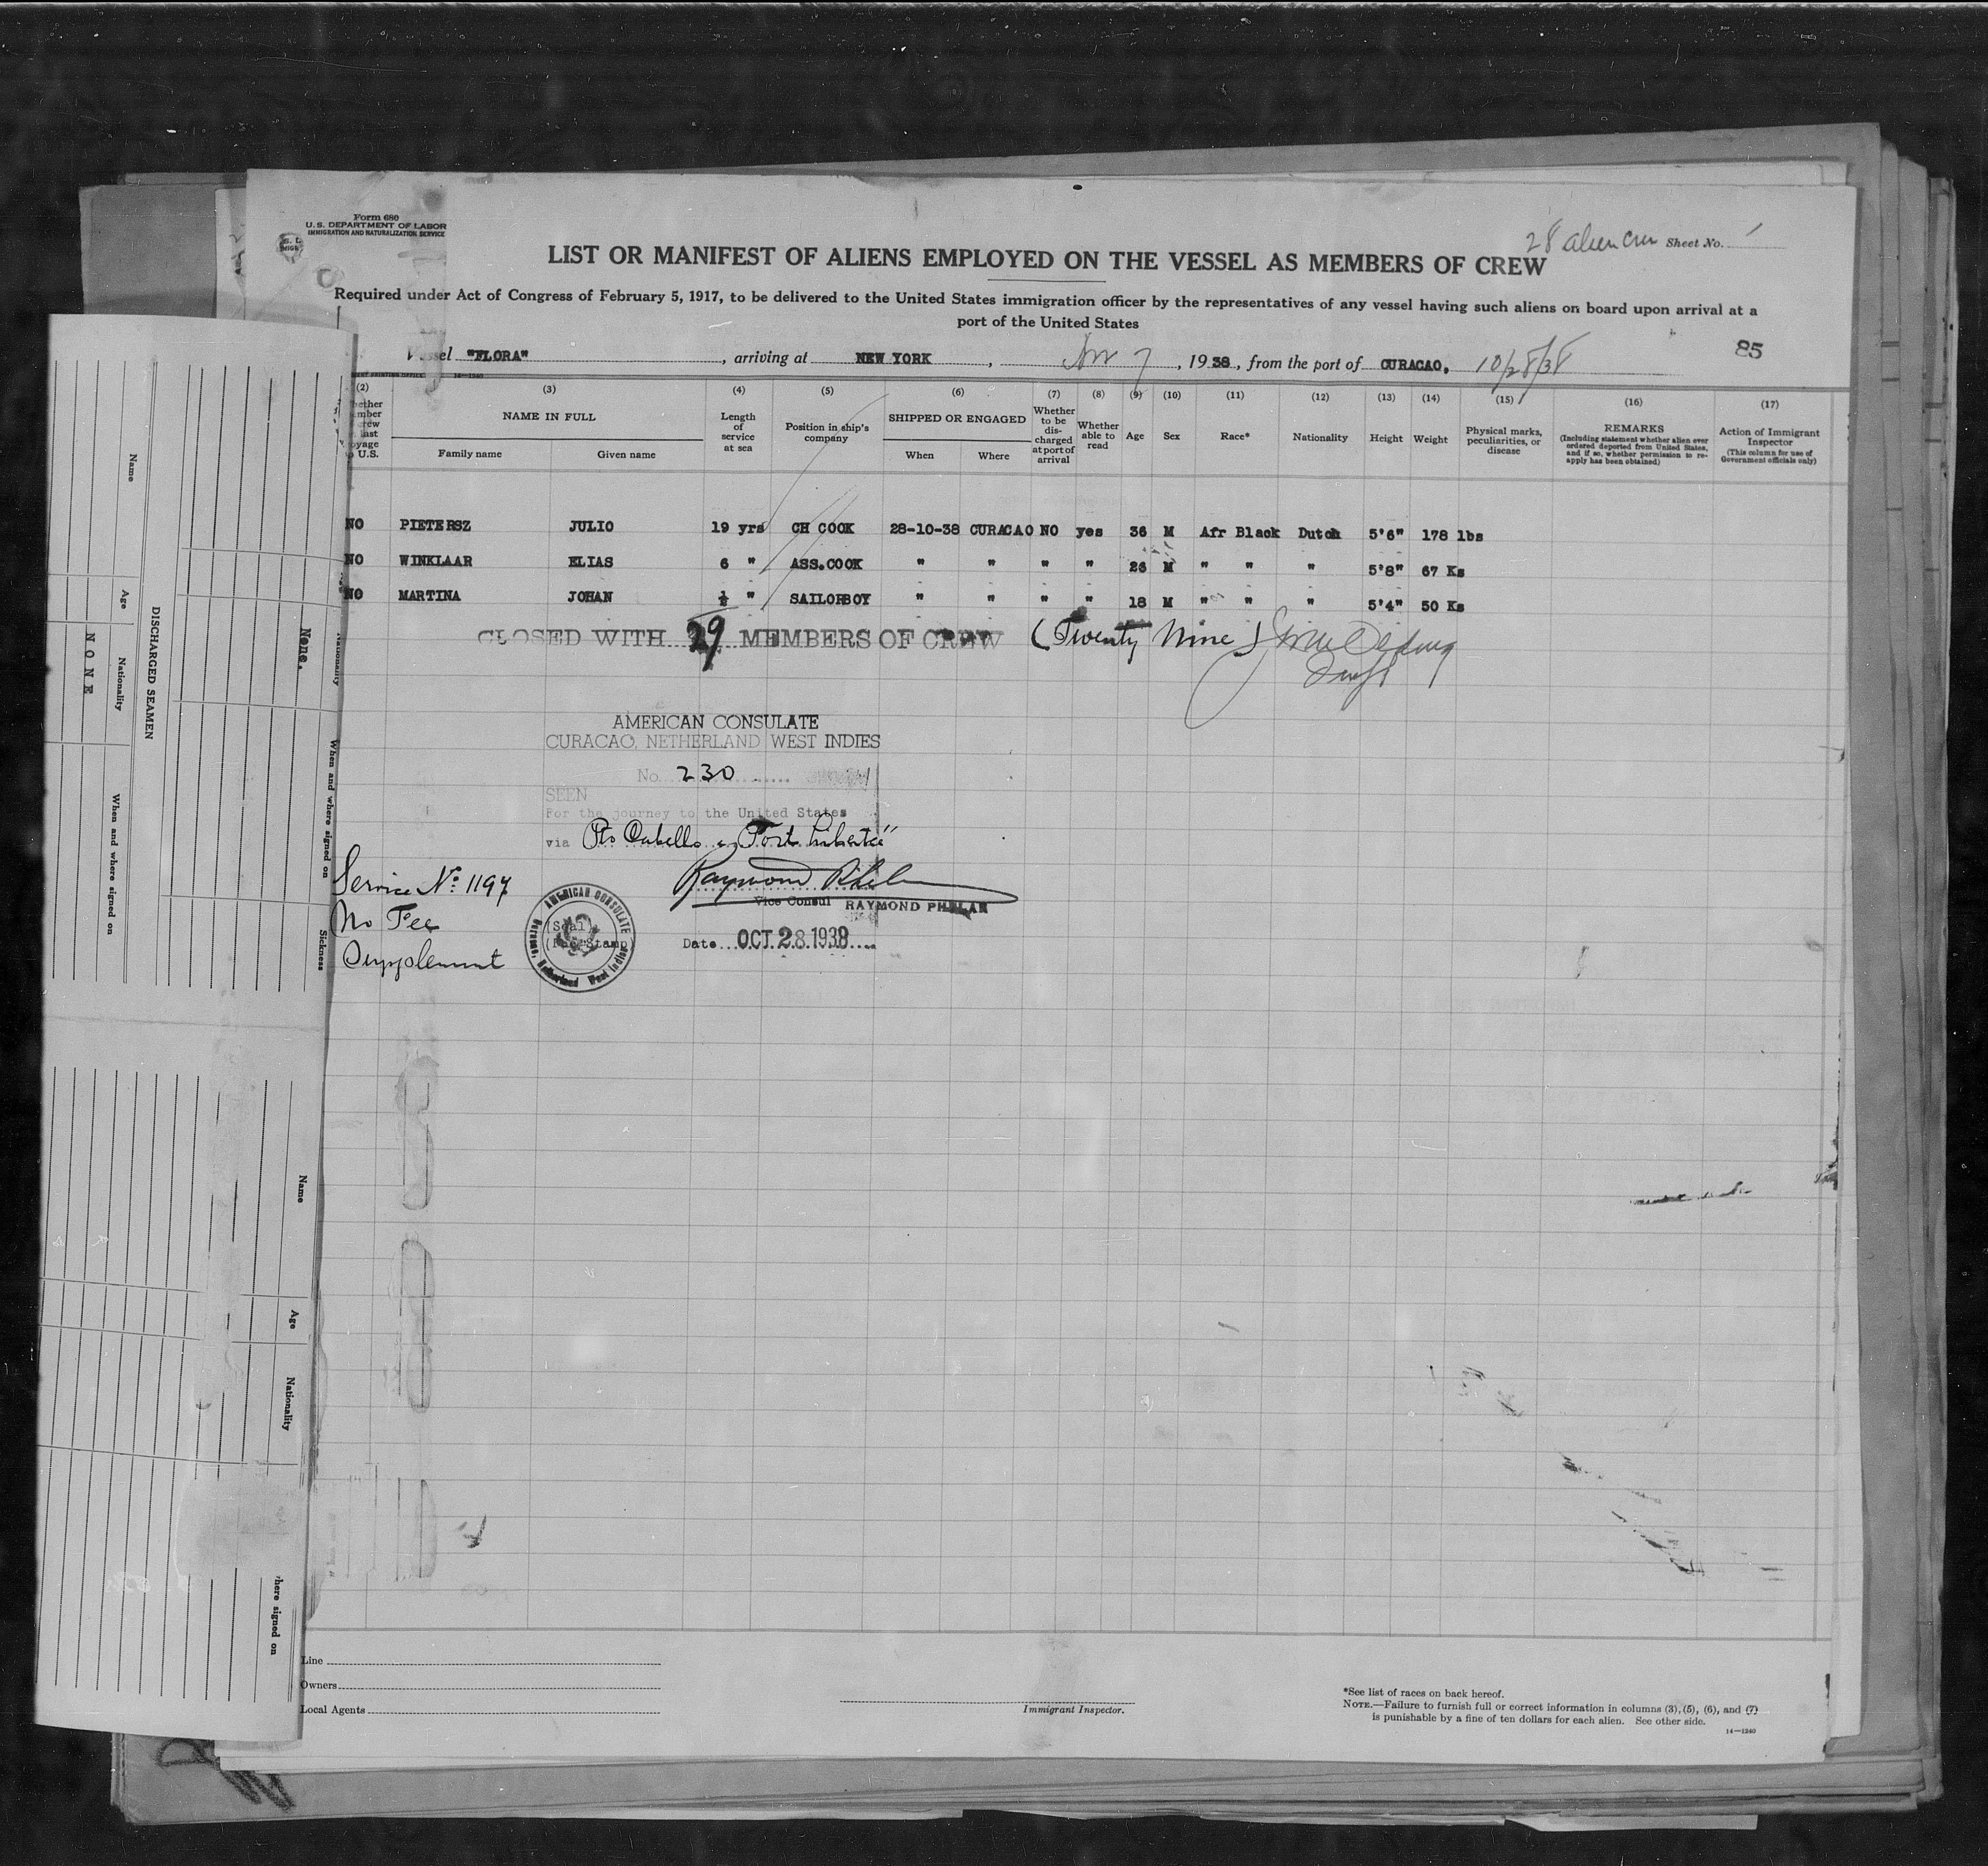 Form 680
U.S. DEPARTMENT OF LABOR
IMMIGRATION AND NATURALIZATION SERVICE
28 alien crew Sheet No.
LIST OR MANIFEST OF ALIENS EMPLOYED ON THE VESSEL AS MEMBERS OF CREW
Required under Act of Congress of February 5, 1917, to be delivered to the United States immigration officer by the representatives of any vessel having such aliens on board upon arrival at a
port of the United States
85
Vessel "FLORA", arriving at NEW YORK, Nov 7, 1938, from the port of CURACAO, 10/28/38
(2) (3) (4) (5) (6) (7) (8) (9) (10) (11) (12) (13) (14) (15) (16) (17)
NAME IN FULL
Family name
Given name
Length of service at sea
Position in ship's company
SHIPPED OR ENGAGED
When
Where
Whether to be discharged at port of arrival
Whether able to read
Age
Sex
Race*
Nationality
Height
Weight
Physical marks, peculiarities, or disease
REMARKS
(Including statement whether alien ever ordered deported from United States, and if so, whether permission to re-apply has been obtained)
Action of Immigrant Inspector
(This column for use of Government officials only)
NO PIETERSZ JULIO 19 yrs CH COOK 28-10-38 CURACAO NO yes 36 M Afr Black Dutch 5'6" 178 lbs
NO WINKLAAR ELIAS 6 " ASS.COOK " " " " 26 M " " " 5'8" 67 Ks
NO MARTINA JOHAN ½ " SAILORBOY " " " " 18 M " " " 5'4" 50 Ks
CLOSED WITH 29 MEMBERS OF CREW (Twenty Nine)
AMERICAN CONSULATE
CURACAO, NETHERLAND WEST INDIES
No. 230
SEEN
For the journey to the United States
via Pto Cabello & "Fort Liberté"
Raymond Phelan
Vice Consul RAYMOND PHELAN
Service Nº: 1197
No Fee
Supplement
AMERICAN CONSULATE
Curacao, Netherland West Indies
(Seal)
(Fee Stamp)
Date OCT. 28. 1938
DISCHARGED SEAMEN
Name
Age
Nationality
When and where signed on
NONE
None.
When and where signed on
Sickness
Name
Age
Nationality
here signed on
Line
Owners
Local Agents
Immigrant Inspector.
*See list of races on back hereof.
NOTE.—Failure to furnish full or correct information in columns (3), (5), (6), and (7)
is punishable by a fine of ten dollars for each alien. See other side.
14—1240